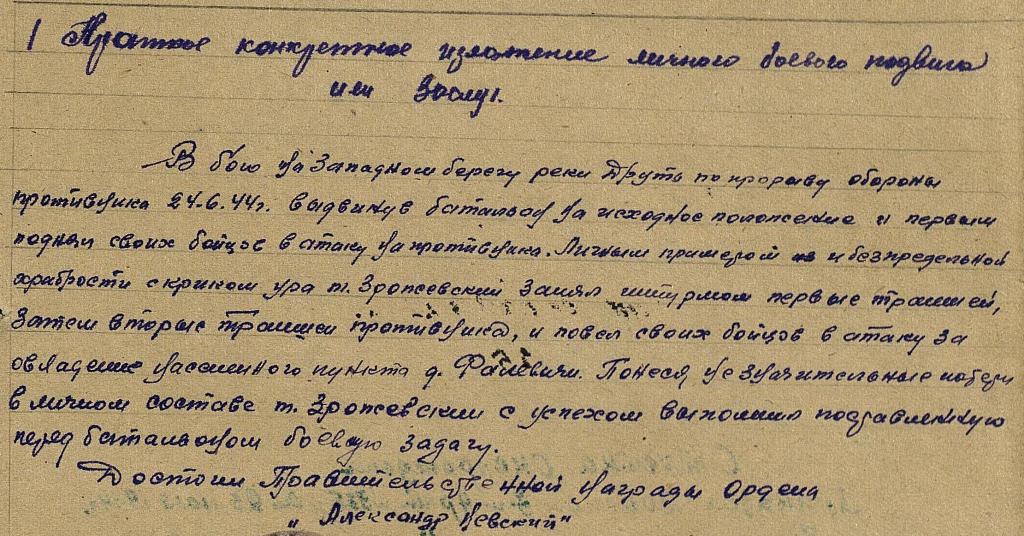 1 Краткое конкретное изложение личного боевого подвига
или Заслуг.
В бою на Западном берегу реки Друть по прорыву обороны
противника 24.6.44г. выдвинув батальон на исходное положение и первым
поднял своих бойцов в атаку на противника. Личным примером и безпредельной
храбрости с криком ура т. Зропсевский Занял штурмом первые траншеи,
Затем вторые траншеи противника, и повел своих бойцов в атаку за
овладение населенного пункта д. Фалевичи. Понеся незначительные потери
в личном составе т. Зропсевский с успехом выполнил поставленную
перед батальоном боевую задачу.
Достоин Правительственной награды Ордена
„Александр Невский"